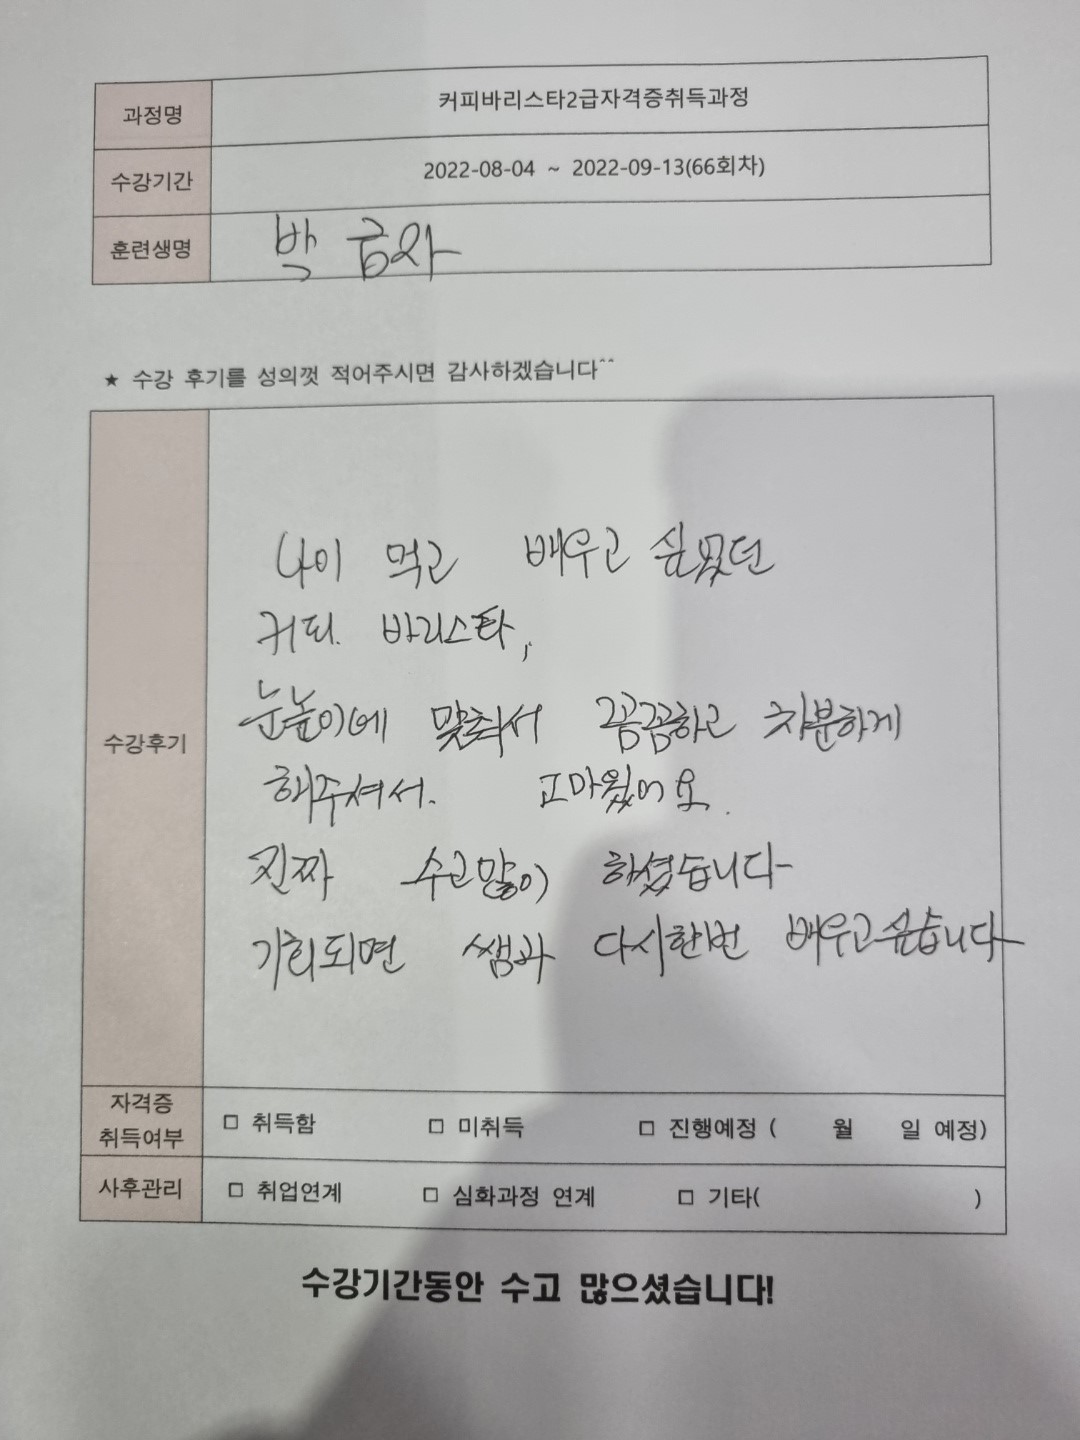 과정명 커피바리스타2급자격증취득과정
수강기간 2022-08-04 ~ 2022-09-13(66회차)
훈련생명 박금자
★ 수강 후기를 성의껏 적어주시면 감사하겠습니다^^
나이 먹고 배우고 싶었던
커피. 바리스타,
수강후기
눈높이에 맞춰서 꼼꼼하고 차분하게
해주셔서. 고마웠어요.
진짜 수고많이 하셨습니다
기회되면 쌤과 다시한번 배우고싶습니다
자격증
취득여부 □ 취득함 □ 미취득 □ 진행예정 ( 월 일 예정)
사후관리 □ 취업연계 □ 심화과정 연계 □ 기타( )
수강기간동안 수고 많으셨습니다!